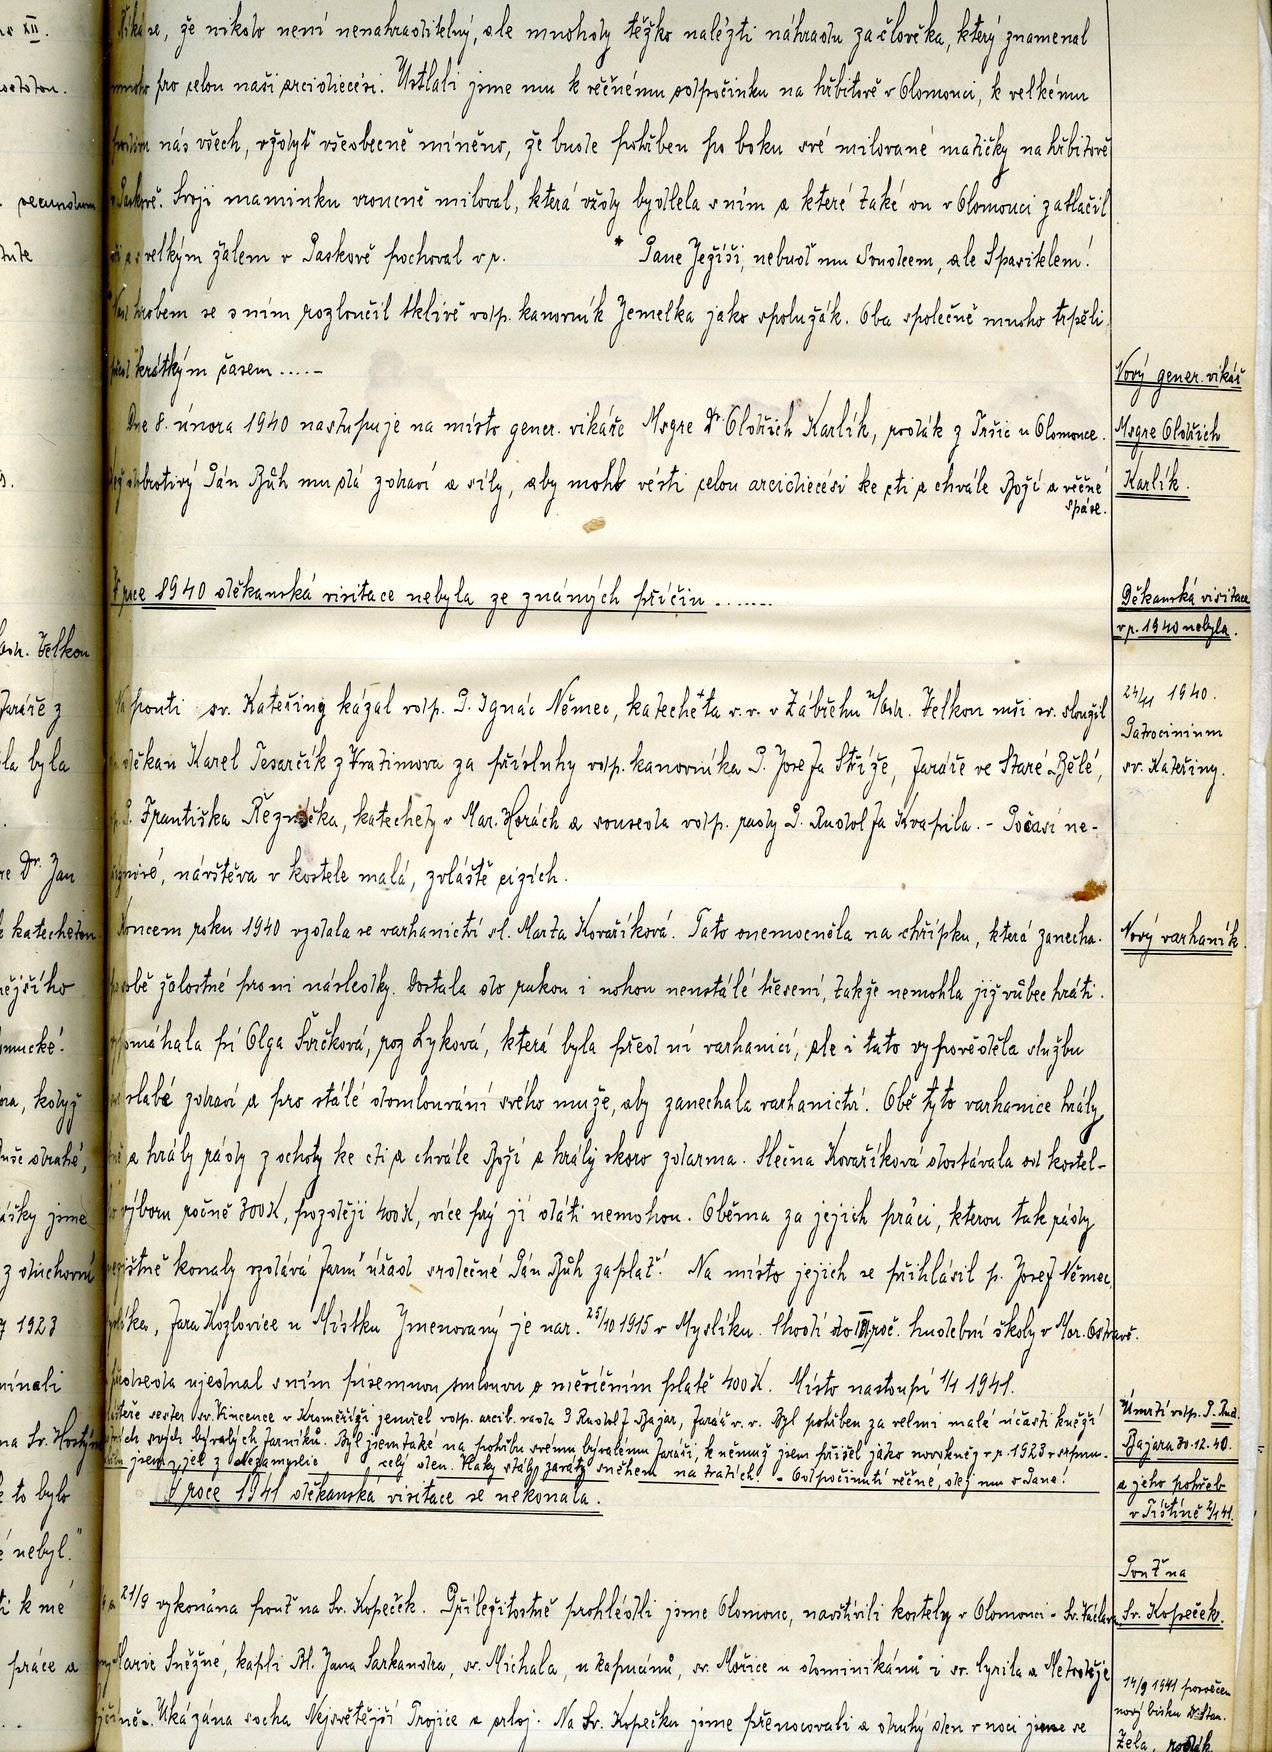 Říká se, že nikdo není nenahraditelný, ale mnohdy těžko nalézti náhradu za člověka, který znamenal
mnoho pro celou naši arcidiecési. Ustlali jsme mu k věčnému odpočinku na hřbitově v Olomouci, k velkému
nás všech, vždyť všeobecně míněno, že bude pohřben po boku své milované matičky na hřbitově
v Paskově. Svoji maminku vroucně miloval, která vždy bydlela s ním a které také on v Olomouci zatlačil
oči a s velkým žalem v Paskově pochoval v r. * Pane Ježíši, nebuď mu Soudcem, ale Spasitelem!
Nad hrobem se s ním rozloučil tklivě vdp. kanovník Jemelka jako spolužák. Oba společně mnoho trpěli
před krátkým časem .....-
Nový gener. vikář
Msgre Oldřich
Karlík.
Dne 8. února 1940 nastupuje na místo gener. vikáře Msgre Dr Oldřich Karlík, rodák z Tršic u Olomouce.
Též dobrotivý Pán Bůh mu dá zdraví a síly, aby mohl vésti celou arcidiecési ke cti a chvále Boží a věčné
spáse.
V roce 1940 děkanská visitace nebyla ze známých příčin .......
Děkanská visitace
v r. 1940 nebyla.
Na pouti sv. Kateřiny kázal vdp. P. Ignác Němec, katecheta v. v. v Zábřehu n/Odr. Velkou mši sv. sloužil
děkan Karel Tesarčík z Vratimova za přísluhy vdp. kanovníka P. Josefa Stříže, faráře ve Staré Bělé,
P. Františka Řezníčka, katechety v Mar. Horách a souseda vdp. rady P. Rudolfa Kvapila. - Počasí ne-
příznivé, návštěva v kostele malá, zvláště cizích.
24/11 1940.
Patrocinium
sv. Kateřiny.
Koncem roku 1940 vzdala se varhanictví sl. Marta Kovaříková. Tato onemocněla na chřipku, která zanecha-
po sobě žalostné pro ni následky. Dostala do rukou i nohou neustálé třesení, takže nemohla již vůbec hráti.
Vypomáhala pí Olga Svrčková, roz Lyková, která byla před ní varhanicí, ale i tato vypověděla službu
pro slabé zdraví a pro stálé domlouvání svého muže, aby zanechala varhanictví. Obě tyto varhanice hrály
a hrály rády z ochoty ke cti a chvále Boží a hrály skoro zdarma. Slečna Kovaříková dostávala od kostel-
výboru ročně 300K, později 400K, více prý jí dáti nemohou. Oběma za jejich práci, kterou tak rády
nezištně konaly vzdává farní úřad srdečné Pán Bůh zaplať! Na místo jejich se přihlásil p. Josef Němec
Myslíka, fara Kozlovice u Místku Jmenovaný je nar. 25/10 1915 v Myslíku. Chodí do III. roč. hudební školy v Mor. Ostravě.
předseda ujednal s ním písemnou smlouvu o měsíčním platě 400K. Místo nastoupí 1/1 1941.
Nový varhaník.
klášteře sester sv. Vincence v Kroměříži zemřel vdp. arcib. rada P Rudolf Bajar, farář v. v. Byl pohřben za velmi malé účasti kněží
svých bývalých farníků. Byl jsem také na pohřbu svému bývalému faráři, k němuž jsem přišel jako novokněz v r. 1923 v srpnu.
jsem jel z celý den. Vlaky stály zaváty sněhem na tratích. - Odpočinutí věčné, dej mu ó Pane!
V roce 1941 děkanská visitace se nekonala.
Úmrtí vdp. P. Rud.
Bajara 30.12.40.
a jeho pohřeb
v Tištině 2/1 41.
21/9 vykonána pouť na Sv. Kopeček. Příležitostně prohlédli jsme Olomouc, navštívili kostely v Olomouci - Sv. Václava
Marie Sněžné, kapli Bl. Jana Sarkandra, sv. Michala, u kapucínů, sv. Mořice u dominikánů i sv. Cyrila a Metoděje
Ukázána socha Nejsvětější Trojice a orloj. Na Sv. Kopečku jsme přenocovali a druhý den v noci jsme se
Pouť na
Sv. Kopeček.
14/9 1941 posvěcen
nový biskup Dr Stan.
Zela, rodák